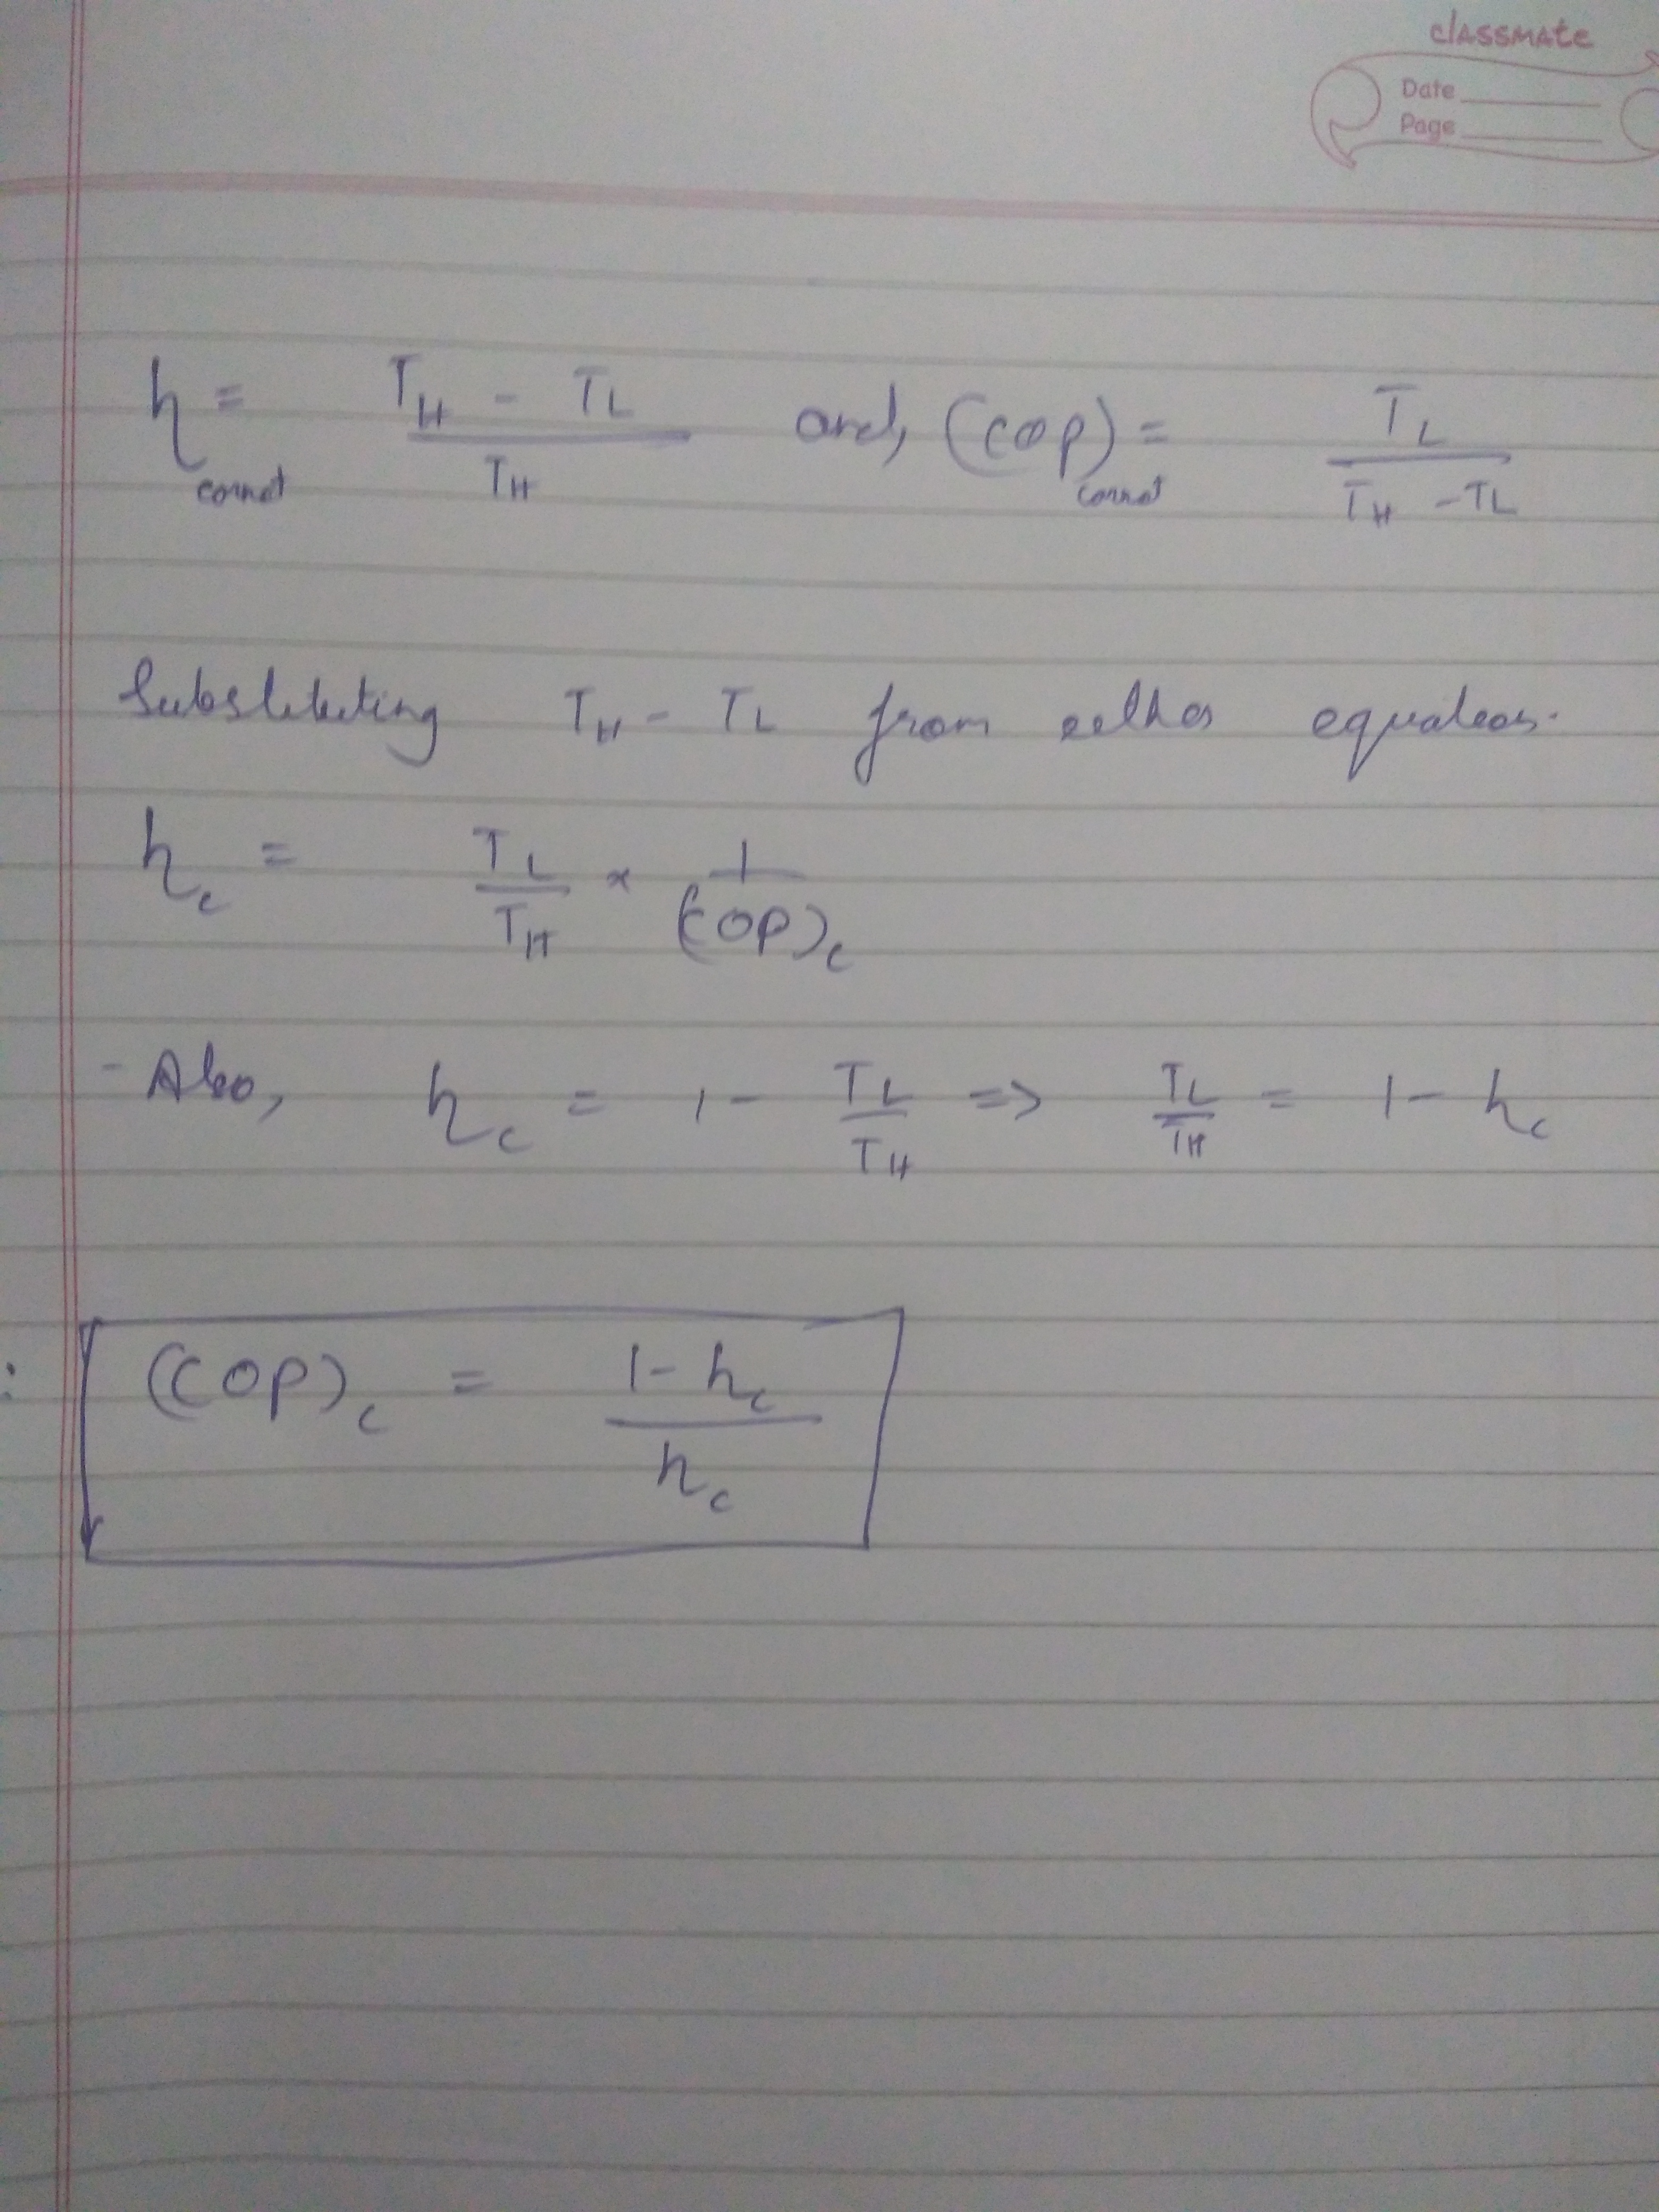 classmate
Date
Page
η carnot = (T_H - T_L) / T_H and, (COP) carnot = T_L / (T_H - T_L)
Substituting T_H - T_L from either equation.
η_c = T_L / T_H × 1 / (COP)_c
- Also, η_c = 1 - T_L / T_H => T_L / T_H = 1 - η_c
: (COP)_c = (1 - η_c) / η_c